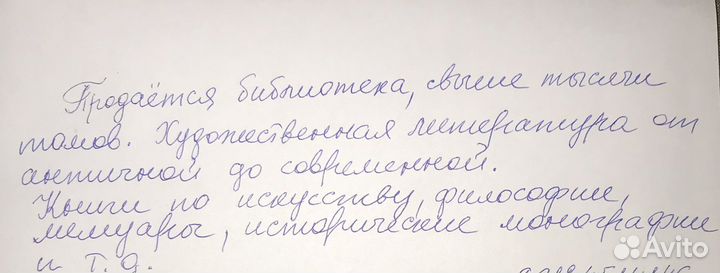 Продаётся библиотека, свыше тысячи
томов. Художественная литература от
античной до современной.
Книги по искусству, философии,
мемуары, исторические монографии
и т.д.
Avito